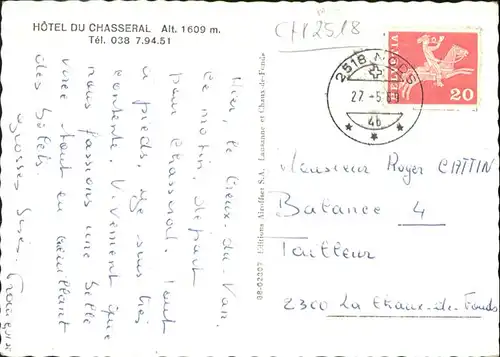 HÔTEL DU CHASSERAL Alt. 1609 m.
Tél. 038 7.94.51
CH 2518
2518 NODS
27.-5.6
4b
HELVETIA
20
Hier, le Creux-du-Van.
Ce matin, départ
pour Chasseral. Tout
à pied, je suis très
contente. Vivement que
nous fassions une belle
virée tout en cueillant
des bolets.
Grosses bises.
88-02207 Editions Airoffset S.A. Lausanne et Chaux-de-Fonds
Monsieur Roger CATTIN
Balance 4
Tailleur
2300 La Chaux-de-Fonds